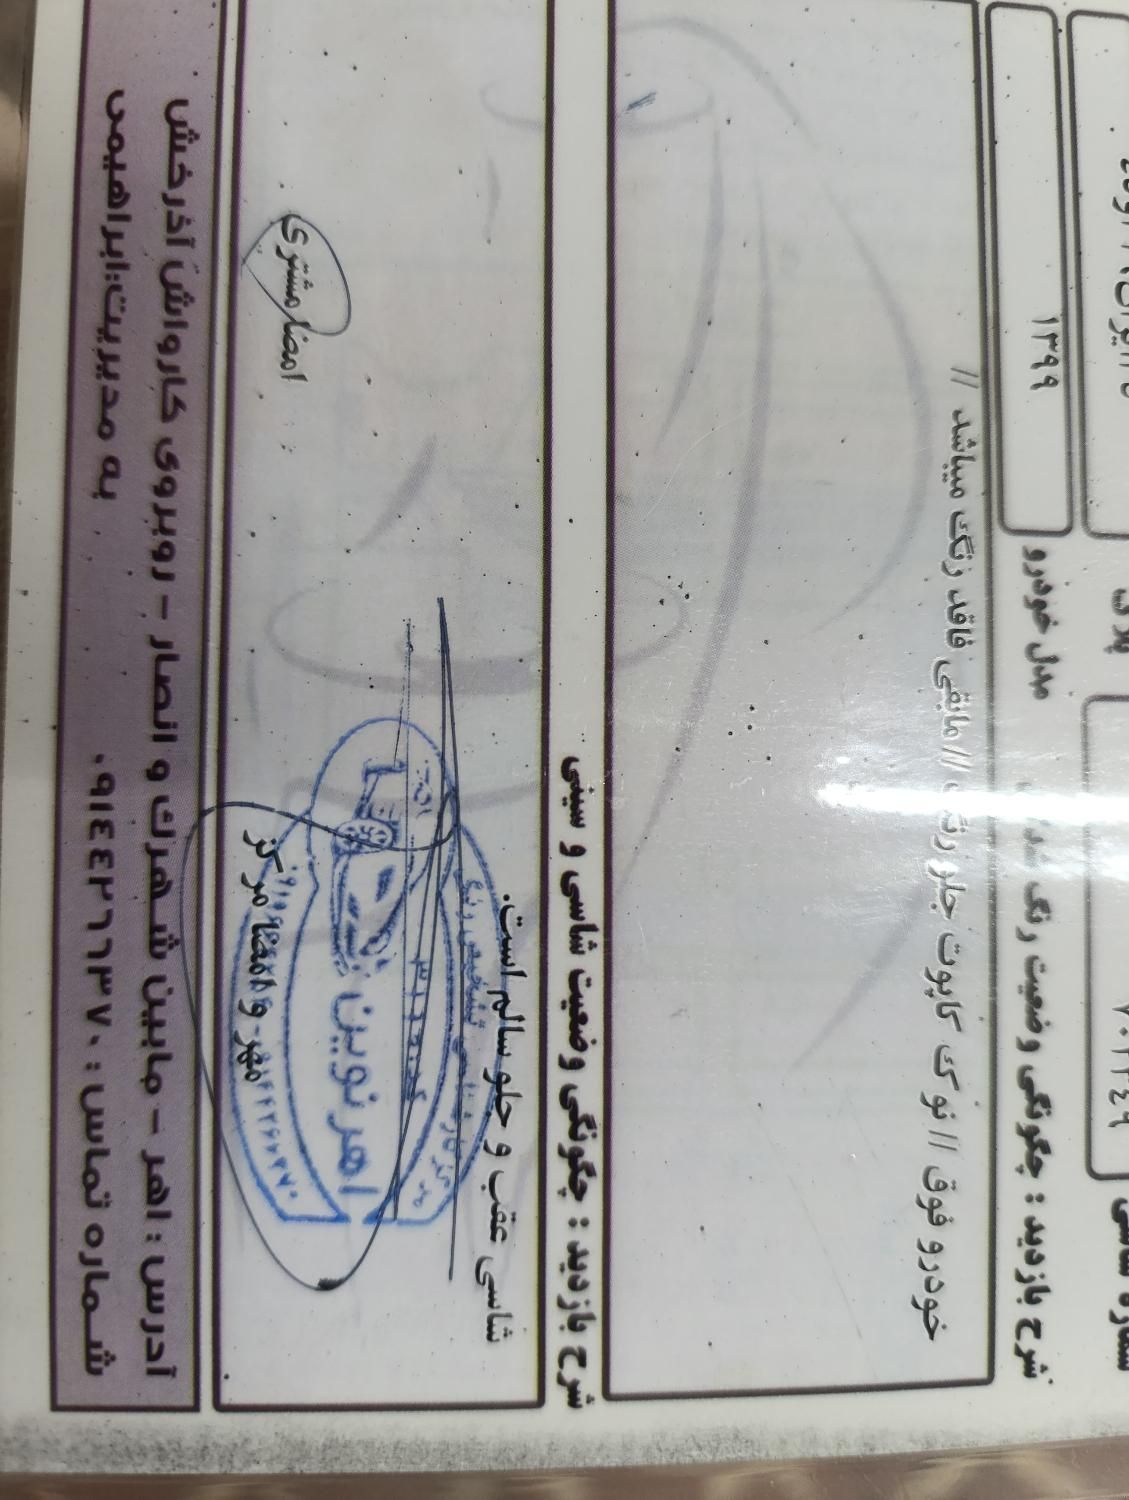 پلاک
شماره شاسی
مدل خودرو
۱۳۹۹
شرح بازدید : چگونگی وضعیت رنگ
خودرو فوق // نوک کاپوت جلو رنگ /// مابقی فاقد رنگ میباشد //
شرح بازدید : چگونگی وضعیت شاسی و سینی
شاسی عقب و جلو سالم است.
امضا مشتری
مهر و امضا مرکز
اهر نوین
آدرس : اهر - مابین شهرک و انصار - روبروی کارواش آذرخش
شماره تماس : ۰۹۱٤٤۲٦٦۳۷۰
به مدیریت:ابراهیمی